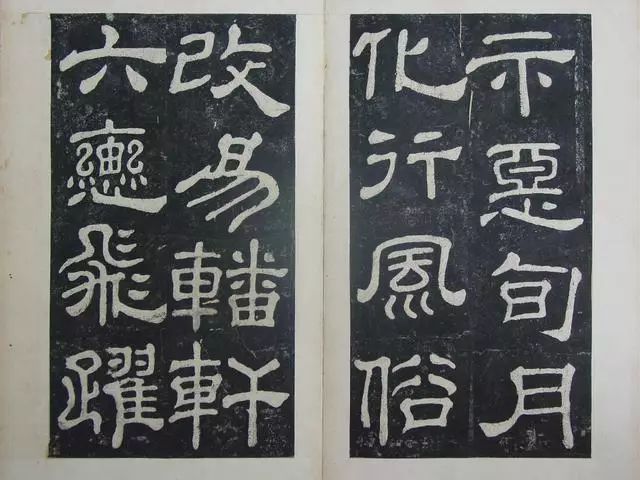 示惡旬月
化行風俗
改易轓軒
六轡飛躍